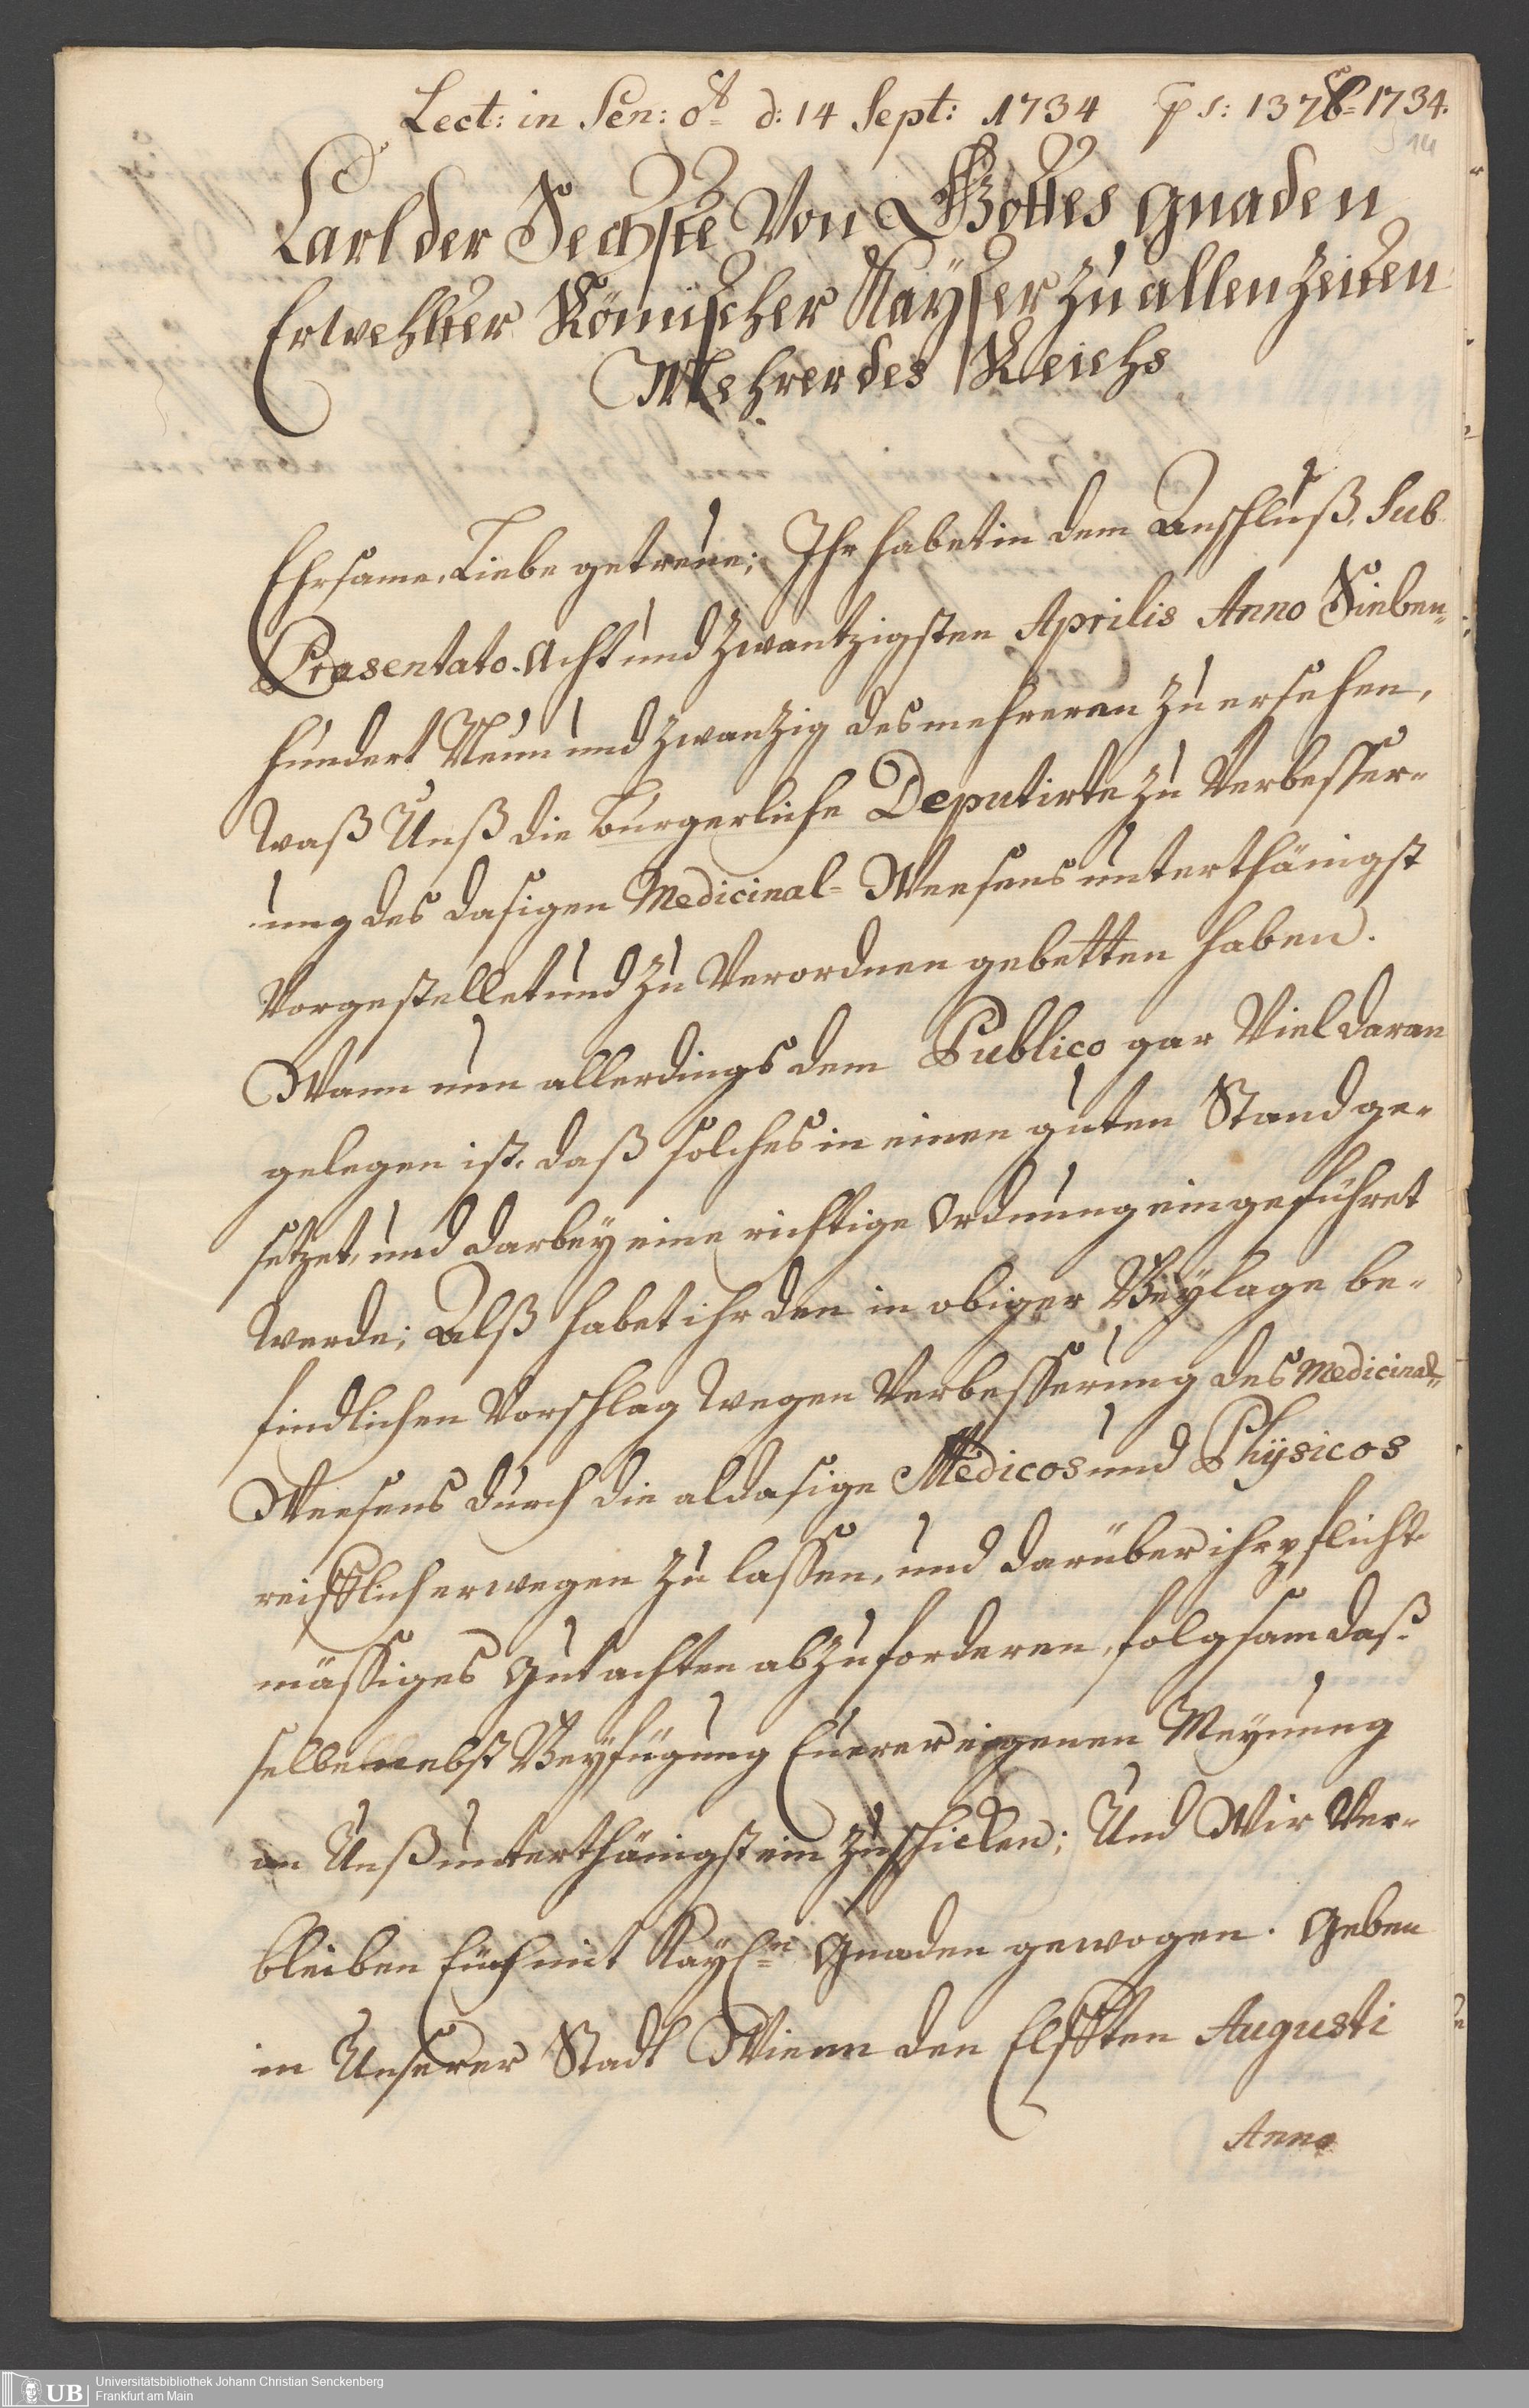 Lect: in Sen: d: 14 Sept: 1734 ps: 13 1734.
14
Carl der Sechste Von Gottes gnaden
Erwehlter Römischer Kayser zu allen Zeiten
Mehrer des Reichs
Ehrsame, Liebe getreue; Ihr habet in dem Anschluß, sub
Præsentato Acht und zwantzigsten Aprilis Anno Sieben-
hundert Neun und zwanzig des mehreren zu ersehen,
waß Unß die burgerliche Deputirte zu Verbesser-
ung des dasigen Medicinal-Weesens unterthänigst
Vorgestellet und zu Verordnen gebetten haben.
Wann nun allerdings dem Publico gar Viel daran
gelegen ist, daß solches in einen guten Stand ge-
setzet, und darbey eine richtige Ordnung eingeführet
werde; Alß habet ihr den in obiger Beylage be-
findlichen Vorschlag wegen Verbesserung des Medicinal-
Weesens durch die aldasige Medicos und Physicos
reifflich erwegen zu lassen, und darüber ihr pflicht-
mässiges Gutachten abzuforderen, folgsam das-
selbe nebst Beyfügung Euerer eigenen Meynung
an Unß unterthänigst einzuschicken; Und Wir Ver-
bleiben Euch mit Kaysn Gnaden gewogen. Geben
in Unserer Stadt Wienn den Eilfften Augusti
Anno
Universitätsbibliothek Johann Christian Senckenberg
UB Frankfurt am Main